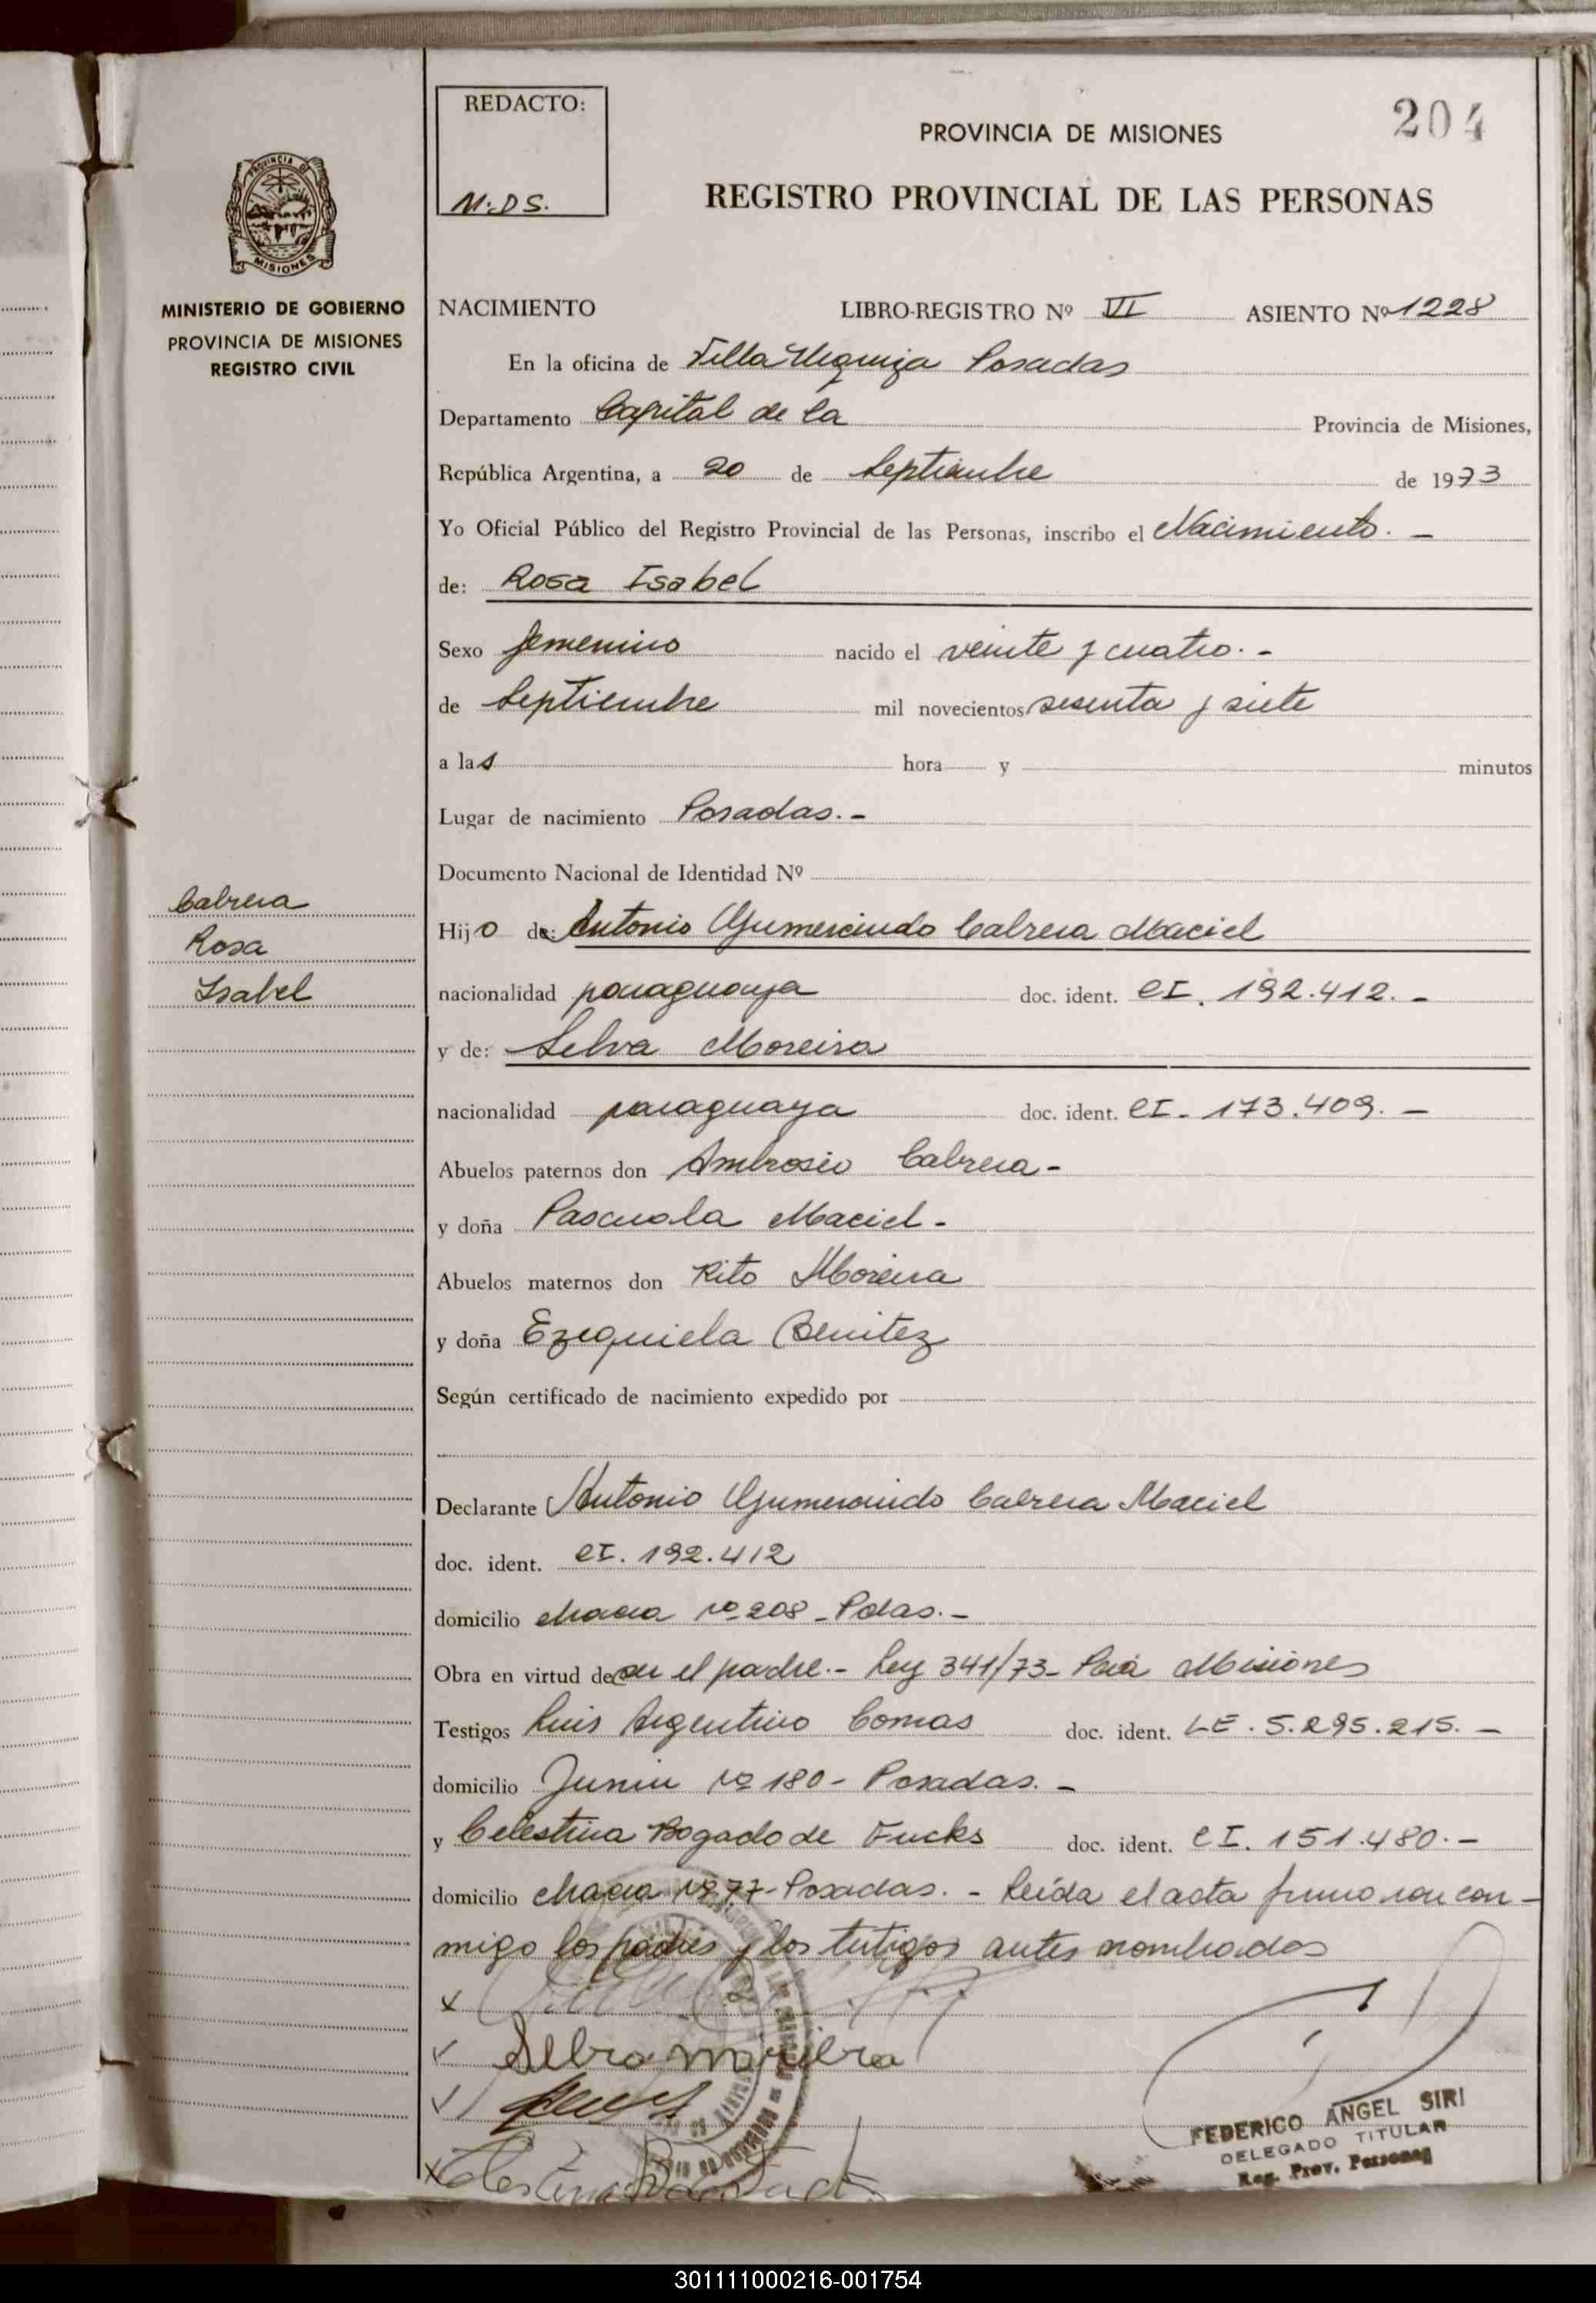 REDACTO:
M.D S.
204
PROVINCIA DE MISIONES
REGISTRO PROVINCIAL DE LAS PERSONAS
PROVINCIA DE
MISIONES
MINISTERIO DE GOBIERNO
PROVINCIA DE MISIONES
REGISTRO CIVIL
NACIMIENTO LIBRO-REGISTRO Nº VI ASIENTO Nº 1228
En la oficina de Villa Urquiza Posadas
Departamento Capital de la Provincia de Misiones,
República Argentina, a 20 de Septiembre de 1973
Yo Oficial Público del Registro Provincial de las Personas, inscribo el Nacimiento. -
de: Rosa Isabel
Sexo femenino nacido el veinte y cuatro. -
de Septiembre mil novecientos sesenta y siete
a las hora y minutos
Lugar de nacimiento Posadas. -
Documento Nacional de Identidad Nº
Cabrera
Rosa
Isabel
Hijo de: Antonio Gumercindo Cabrera Maciel
nacionalidad paraguaya doc. ident. CI. 192.412. -
y de: Selva Moreira
nacionalidad paraguaya doc. ident. CI. 173.409. -
Abuelos paternos don Ambrosio Cabrera -
y doña Pascuala Maciel -
Abuelos maternos don Rito Moreira
y doña Ezequiela Benitez
Según certificado de nacimiento expedido por
Declarante Antonio Gumercindo Cabrera Maciel
doc. ident. CI. 192.412
domicilio chacra Nº 208 - Pdas. -
Obra en virtud de ser el padre. - Ley 341/73 - Pcia Misiones
Testigos Luis Argentino Comas doc. ident. LE. 5.295.215. -
domicilio Junin Nº 180 - Posadas. -
y Celestina Bogado de Fucks doc. ident. CI. 151.480. -
domicilio chacra Nº 77 - Posadas. - Leída el acta firmaron con-
migo los padres y los testigos antes nombrados
x
Selva
FEDERICO ANGEL SIRI
DELEGADO TITULAR
Reg. Prov. Personas
301111000216-001754